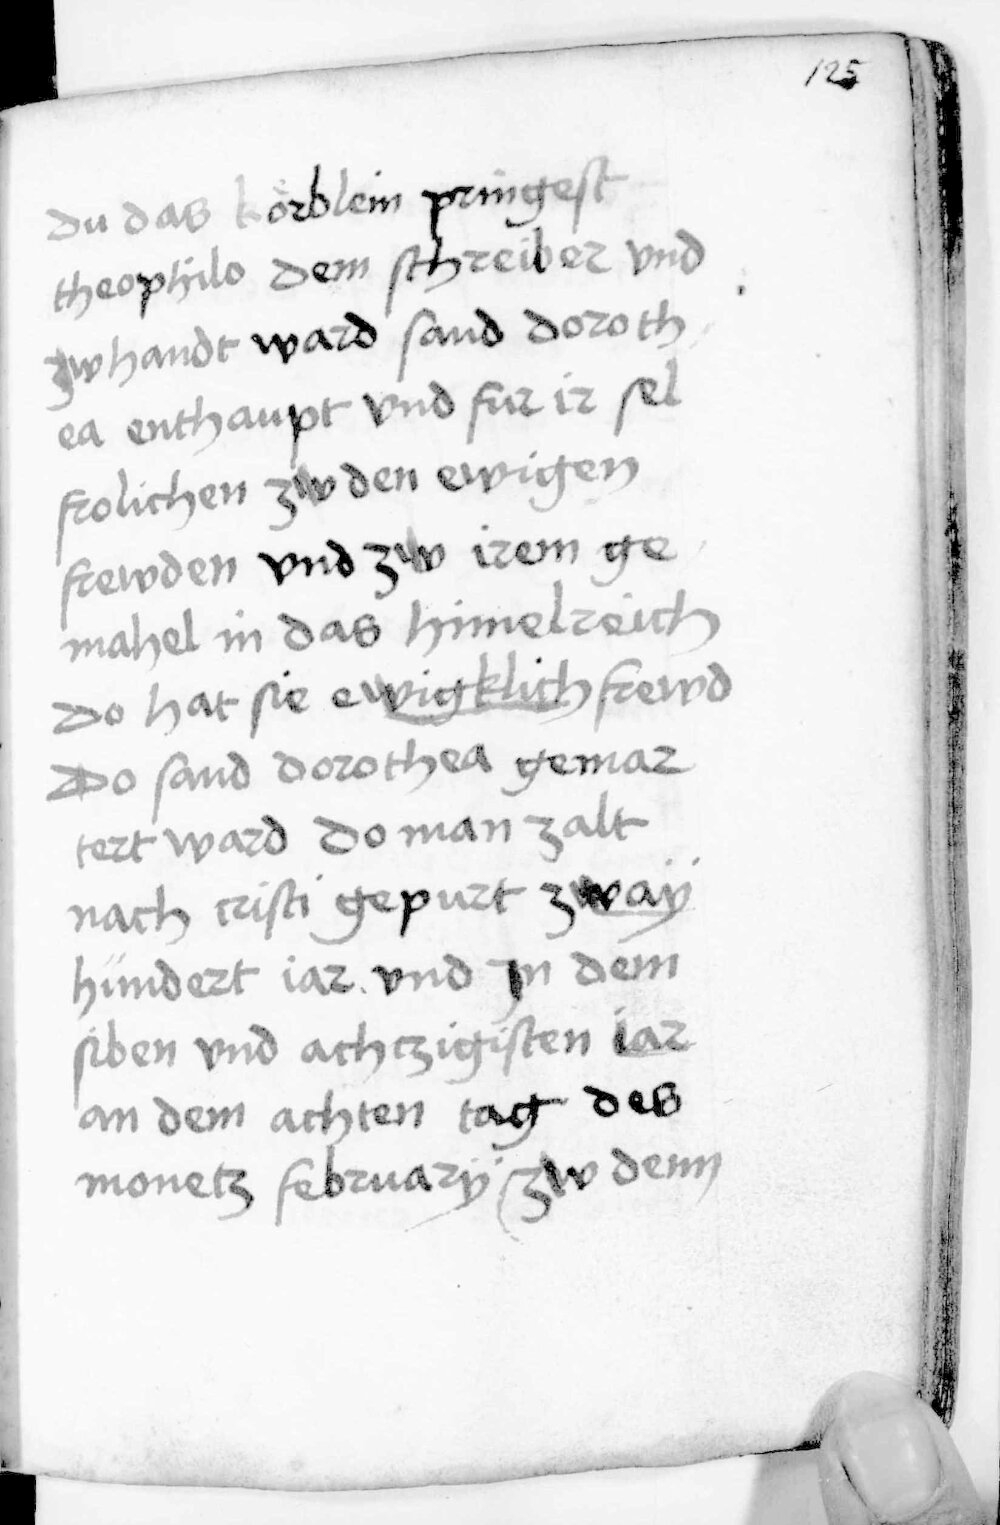 125
du das körblein pringest
theophilo dem schreiber vnd
zwhandt ward sand doroth
ea enthaupt vnd fur ir sel
frolichen zw den ewigen
frewden vnd zw irem ge
mahel in das himelreich
Do hat sie ewigklich frewd
Do sand dorothea gemar
tert ward do man zalt
nach cristi gepurt zwaÿ
hundert iar vnd jn dem
siben vnd achtzigisten iar
an dem achten tag des
monetz februarÿ zw denn